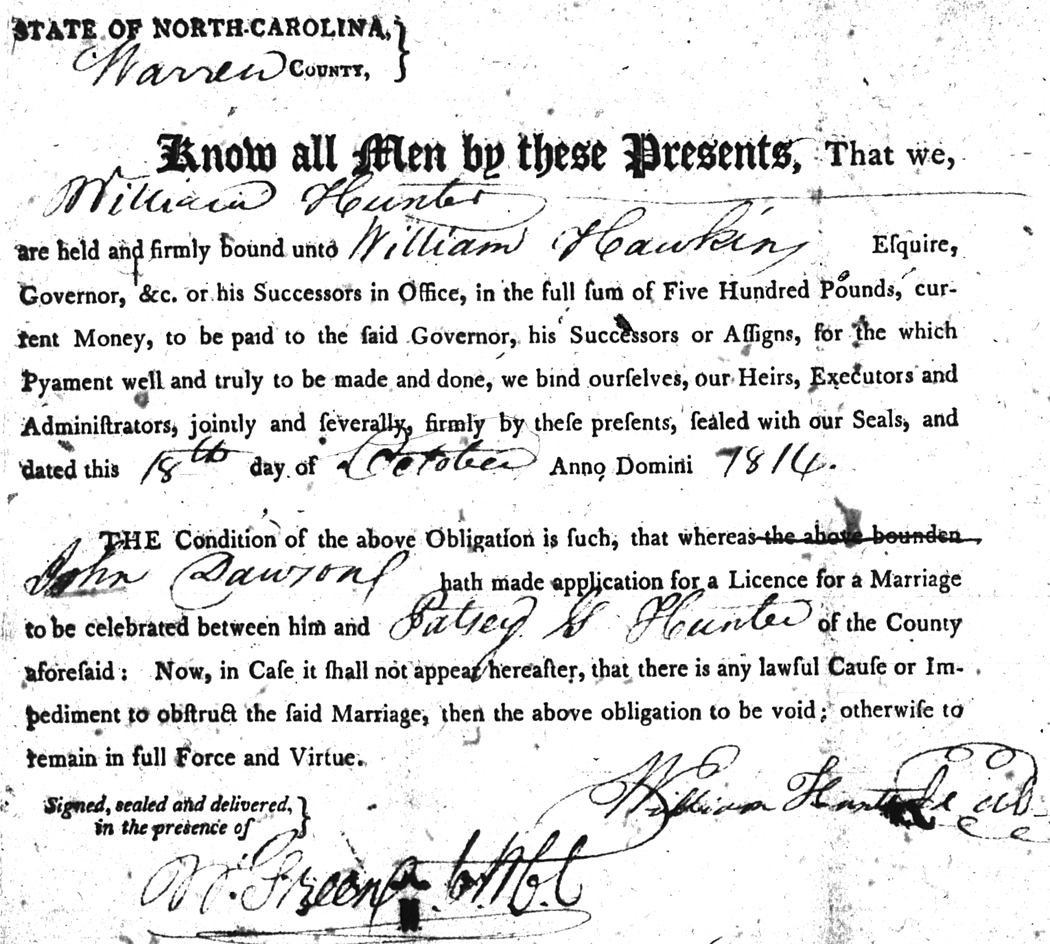 STATE OF NORTH-CAROLINA,
Warren COUNTY,
Know all Men by these Presents, That we,
William Hunter
are held and firmly bound unto William Hawkins Eſquire,
Governor, &c. or his Successors in Office, in the full ſum of Five Hundred Pounds, cur-
rent Money, to be paid to the ſaid Governor, his Successors or Aſſigns, for the which
Pyament well and truly to be made and done, we bind ourſelves, our Heirs, Executors and
Adminiſtrators, jointly and ſeverally, firmly by theſe preſents, ſealed with our Seals, and
dated this 18th day of October Anno Domini 1814.
THE Condition of the above Obligation is ſuch, that whereas the above bounden
John Dawson hath made application for a Licence for a Marriage
to be celebrated between him and Patsey G Hunter of the County
aforeſaid: Now, in Caſe it ſhall not appear hereafter, that there is any lawful Cauſe or Im-
pediment to obſtruct the ſaid Marriage, then the above obligation to be void; otherwiſe to
remain in full Force and Virtue.
William Hunter
Signed, sealed and delivered,
in the presence of
Wm. Green